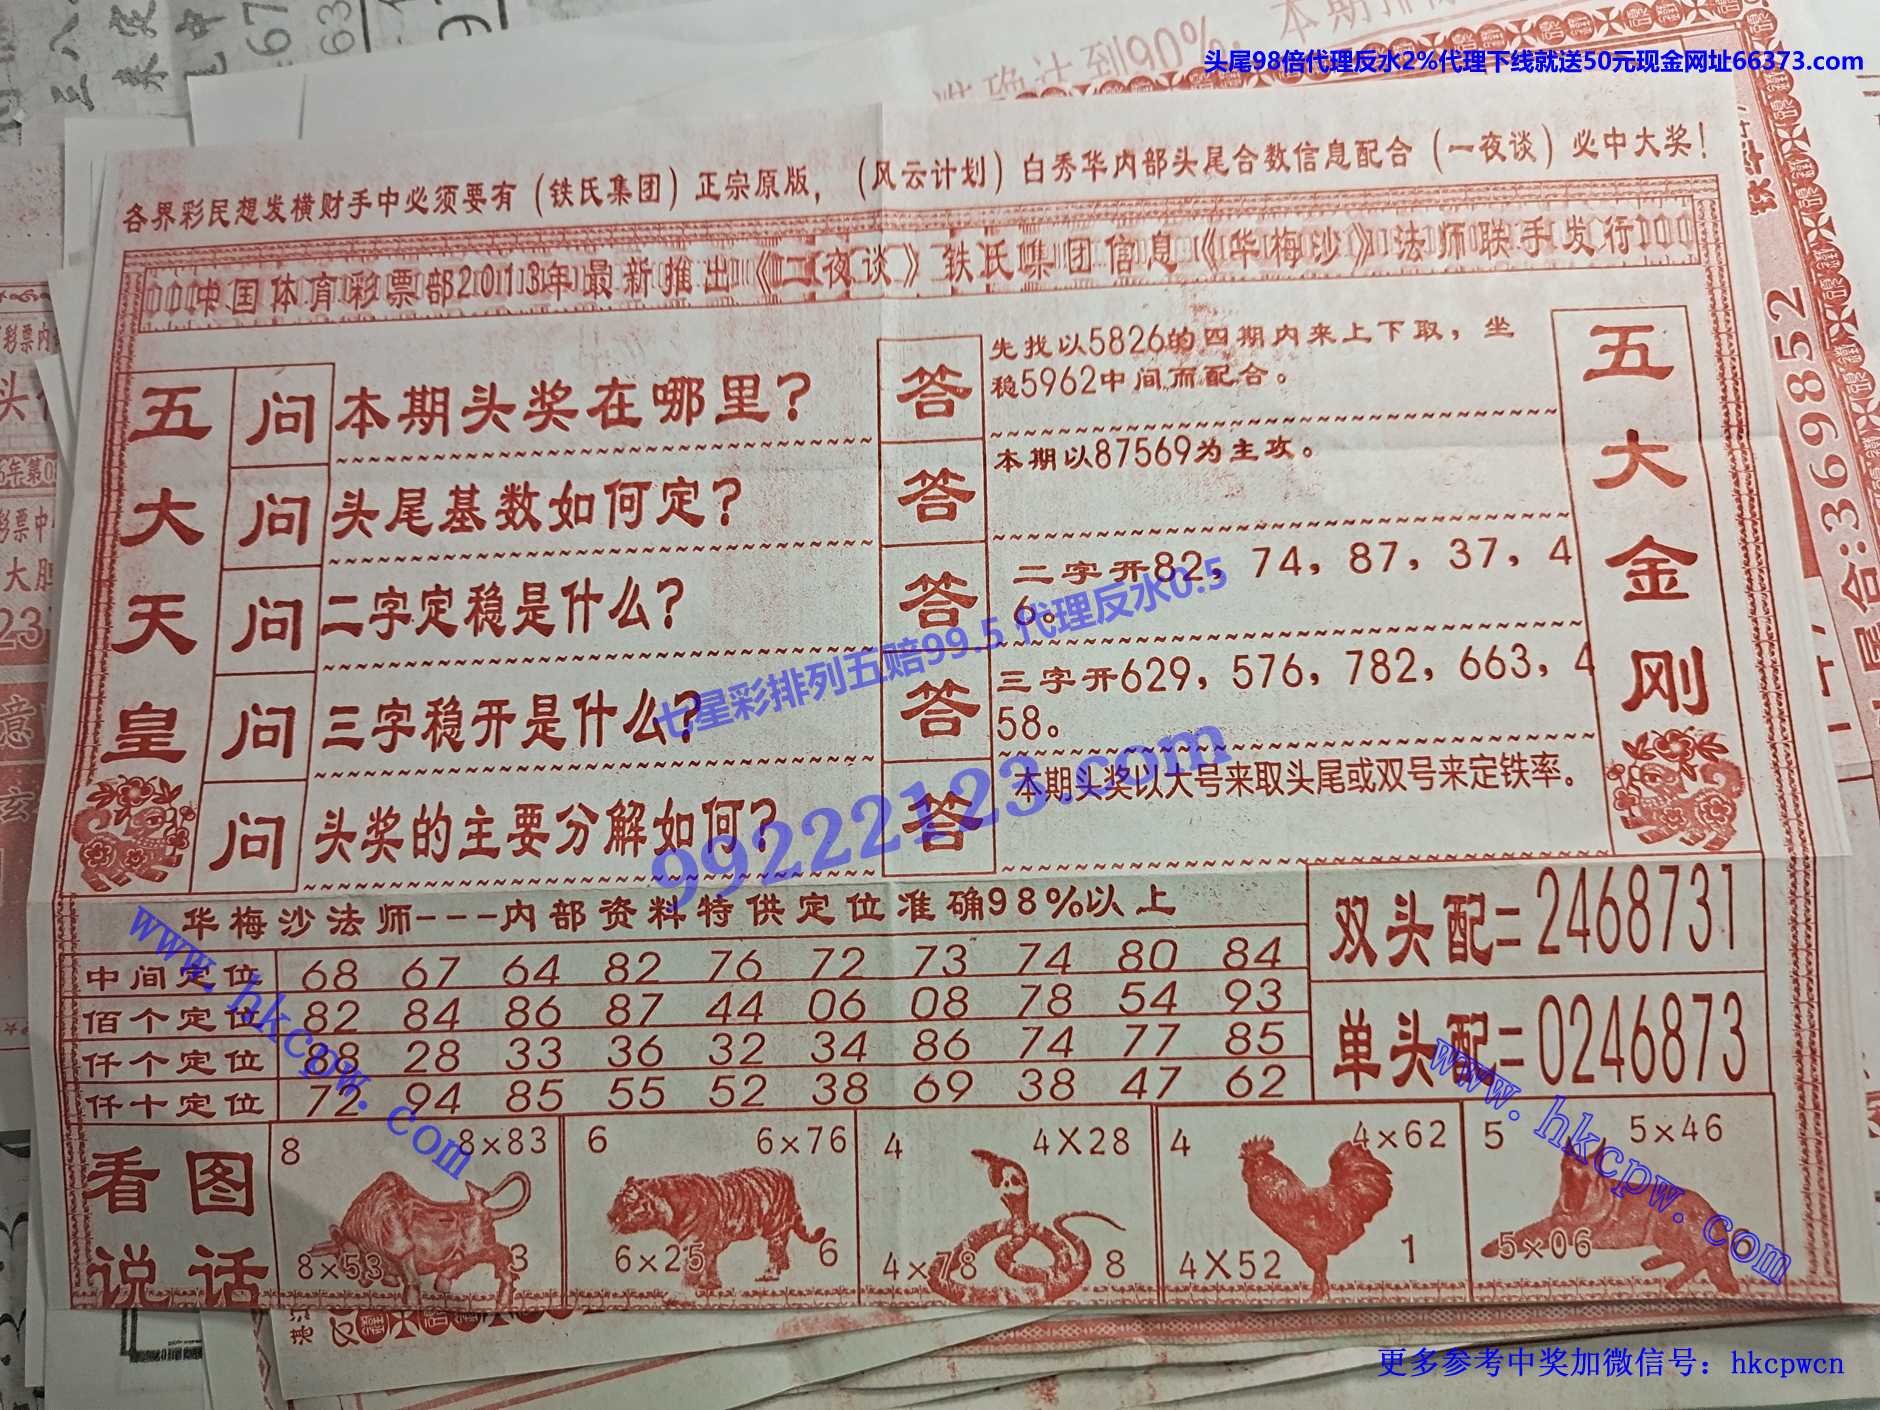 准确达到90%,本期排
头尾98倍代理反水2%代理下线就送50元现金网址66373.com
各界彩民想发横财手中必须要有（铁氏集团）正宗原版，（风云计划）白秀华内部头尾合数信息配合（一夜谈）必中大奖！
中国体育彩票部2013年最新推出《二夜谈》铁氏集团信息《华梅沙》法师联手发行
五大天皇
问 本期头奖在哪里？
答 先找以5826的四期内来上下取，坐
稳5962中间而配合。
问 头尾基数如何定？
答 本期以87569为主攻。
问 二字定稳是什么？
答 二字开82，74，87，37，4
6。
问 三字稳开是什么？
答 三字开629，576，782，663，4
58。
问 头奖的主要分解如何？
答 本期头奖以大号来取头尾或双号来定铁率。
五大金刚
七星彩排列五赔99.5 代理反水0.5
99222123.com
华梅沙法师---内部资料特供定位准确98%以上
中间定位 68 67 64 82 76 72 73 74 80 84
佰个定位 82 84 86 87 44 06 08 78 54 93
仟个定位 88 28 33 36 32 34 86 74 77 85
仟十定位 72 94 85 55 52 38 69 38 47 62
双头配=2468731
单头配=0246873
www.hkcpw.com
www.hkcpw.com
看图
说话
8 8×83
8×53 3
6 6×76
6×25 6
4 4X28
4×78 8
4 4×62
4X52 1
5 5×46
5×06 6
尾合:369852
更多参考中奖加微信号：hkcpwcn